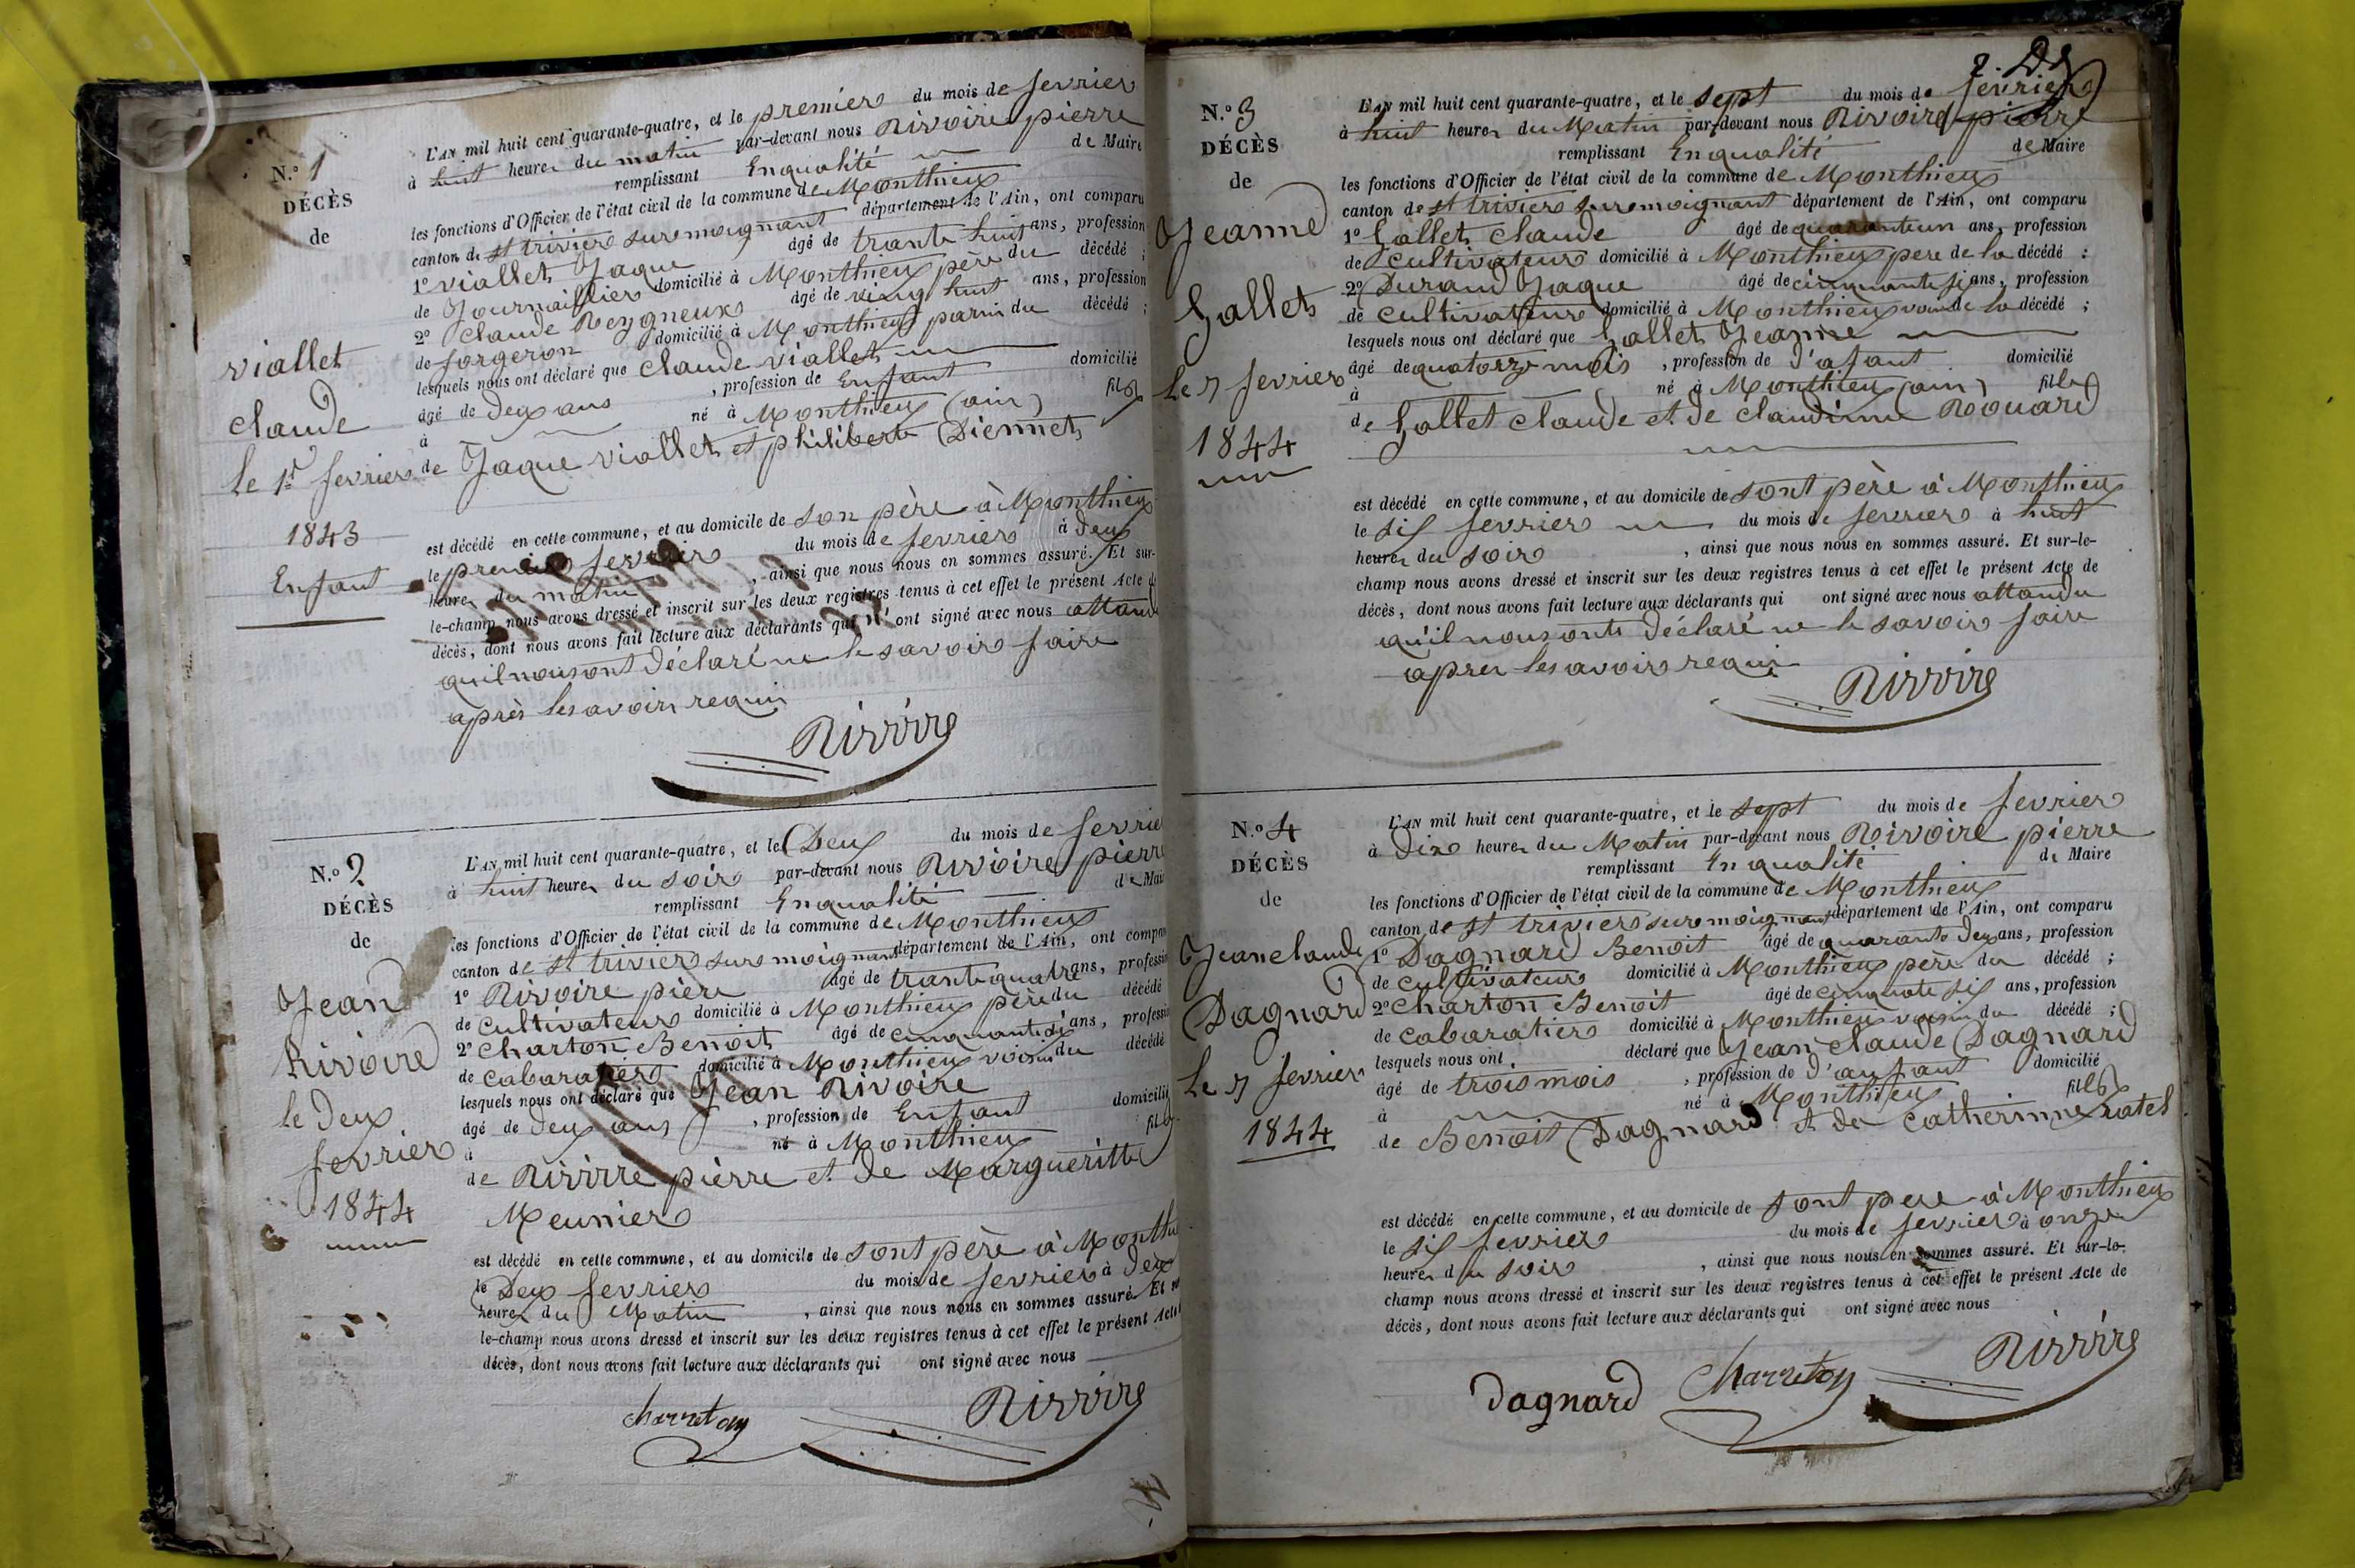 N.º 1
DÉCÈS
de
viallet
claude
le 1er fevrier
1843
Enfant
L'AN mil huit cent quarante-quatre, et le premier du mois de fevrier
à huit heures du matin par-devant nous Rivoire pierre
remplissant En qualité de Maire
les fonctions d'Officier de l'état civil de la commune de Monthieux
canton de st trivier sure moignant département de l'Ain, ont comparu
1º viallet Jaque âgé de trante huit ans, profession
de Journaillier domicilié à Monthieux père du décédé ;
2º Claude Reygneux âgé de ving huit ans, profession
de forgeron domicilié à Monthieux parin du décédé ;
lesquels nous ont déclaré que claude viallet
âgé de deux ans , profession de Enfant domicilié
à né à Monthieux (ain) fils
de Jaque viallet et philiberte Diennet
est décédé en cette commune, et au domicile de son père à Monthieux
le premier fevrier du mois de fevrier à deux
heures du matin , ainsi que nous nous en sommes assuré. Et sur-
le-champ nous avons dressé et inscrit sur les deux registres tenus à cet effet le présent Acte de
décès, dont nous avons fait lecture aux déclarants qui n' ont signé avec nous attandu
quil nous ont déclaré ne le savoir faire
après les avoir requi
Rivoire
N.º 2
DÉCÈS
de
Jean
Rivoire
le deux
fevrier
1844
L'AN mil huit cent quarante-quatre, et le Deux du mois de fevrier
à huit heures du soir par-devant nous Rivoire pierre
remplissant En qualité de Maire
les fonctions d'Officier de l'état civil de la commune de Monthieux
canton de st trivier sure moignant département de l'Ain, ont comparu
1º Rivoire pière âgé de trante quatre ans, profession
de cultivateur domicilié à Monthieux père du décédé
2º Charton Benoit âgé de cinquante si ans, profession
de cabaratier domicilié à Monthieux voisin du décédé
lesquels nous ont déclaré que Jean Rivoire
âgé de deux ans , profession de Enfant domicilié
à né à Monthieux fils
de Rivoire pierre et de Margueritte
Meunier
est décédé en cette commune, et au domicile de sont père à Monthieux
le Deux fevrier du mois de fevrier à deux
heures du Matin , ainsi que nous nous en sommes assuré. Et
le-champ nous avons dressé et inscrit sur les deux registres tenus à cet effet le présent Acte
décès, dont nous avons fait lecture aux déclarants qui ont signé avec nous
charreton Rivoire
N.º 3
DÉCÈS
de
Jeanne
Gallet
le 7 fevrier
1844
L'AN mil huit cent quarante-quatre, et le sept du mois de fevrier
à huit heures du Matin par-devant nous Rivoire pierre
remplissant En qualité de Maire
les fonctions d'Officier de l'état civil de la commune de Monthieux
canton de st trivier sure moignant département de l'Ain, ont comparu
1º Gallet claude âgé de quaranteun ans, profession
de cultivateur domicilié à Monthieux pere de la décédé :
2º Durand Jaque âgé de cinquante si ans, profession
de cultivateur domicilié à Monthieux voisin de la décédé ;
lesquels nous ont déclaré que Gallet Jeanne
âgé de quatorze mois , profession de d'afant domicilié
à né à Monthieux (ain) fille
de Gallet claude et de claudinne Rouard
est décédé en cette commune, et au domicile de sont père à Monthieux
le six fevrier du mois de fevrier à huit
heures du soir , ainsi que nous nous en sommes assuré. Et sur-le-
champ nous avons dressé et inscrit sur les deux registres tenus à cet effet le présent Acte de
décès, dont nous avons fait lecture aux déclarants qui ont signé avec nous attandu
quil nous onts déclaré ne le savoir faire
apres les avoir requi
Rivoire
N.º 4
DÉCÈS
de
Jean claude
Dagnard
le 7 fevrier
1844
L'AN mil huit cent quarante-quatre, et le sept du mois de fevrier
à dix heures du Matin par-devant nous Rivoire pierre
remplissant En qualité de Maire
les fonctions d'Officier de l'état civil de la commune de Monthieux
canton de st trivier sure moignant département de l'Ain, ont comparu
1º Dagnard Benoit âgé de quarante deux ans, profession
de cultivateur domicilié à Monthieux père du décédé ;
2º Charton Benoit âgé de cinquate six ans, profession
de cabaratier domicilié à Monthieux voisin du décédé ;
lesquels nous ont déclaré que Jean claude Dagnard
âgé de trois mois , profession de d'anfant domicilié
à né à Monthieux fils
de Benoit Dagnard et de catherinne ratel
est décédé en cette commune, et au domicile de sont pere à Monthieux
le six fevrier du mois de fevrier à onze
heures du soir , ainsi que nous nous en sommes assuré. Et sur-le-
champ nous avons dressé et inscrit sur les deux registres tenus à cet effet le présent Acte de
décès, dont nous avons fait lecture aux déclarants qui ont signé avec nous
Dagnard Charreton Rivoire